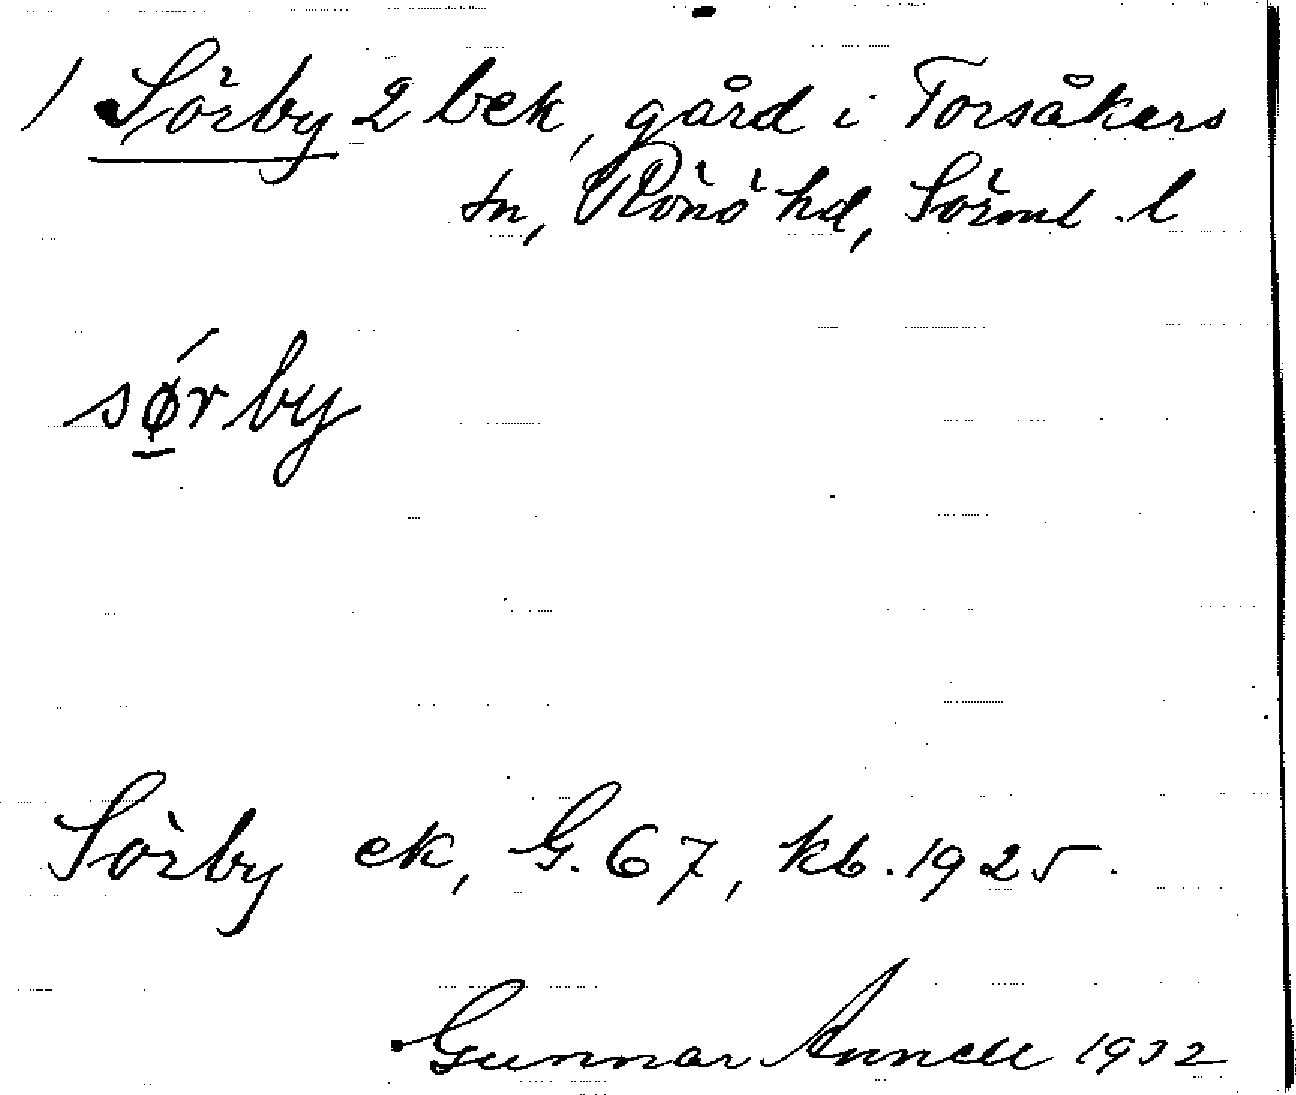 / Sörby 2 bek, gård i Torsåkers
sn, Rönö hd, Sörml. l
sǿ̲rby
Sörby ek, G. 67, kb. 1925.
Gunnar Annell 1932